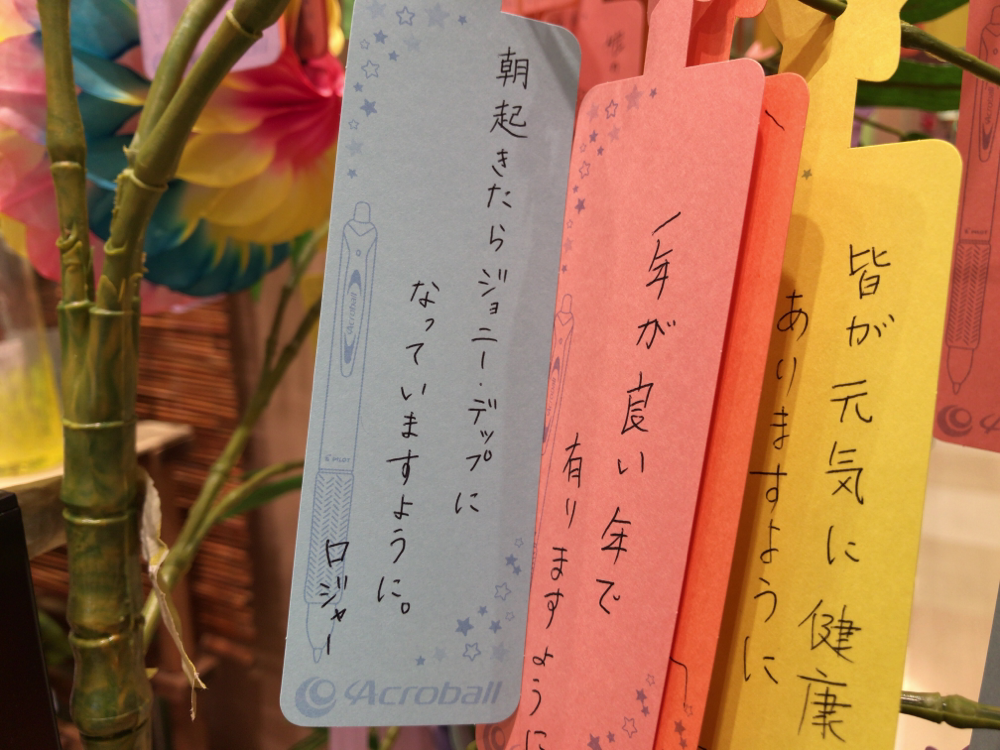 朝起きたらジョニー・デップに
なっていますように。
ロジャー
PILOT
Acroball
Acroball
一年が良い年で
有りますように
皆が元気に健康
ありますように
PILOT